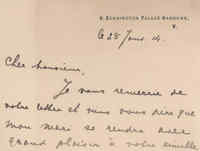 8, KENSINGTON PALACE GARDENS,
W.
le 28 Janv. 4.
Cher Monsieur,
Je vous remercie de
votre lettre et vous dire que
mon mari se rendra avec
grand plaisir à votre